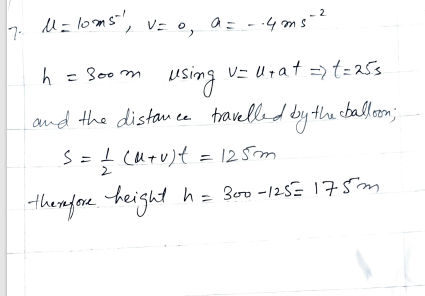 7. u = 10ms⁻¹, v = 0, a = -.4 ms⁻²
h = 300m using v = u+at ⇒ t=25s
and the distance travelled by the balloon;
S = 1/2 (u+v)t = 125m
therefore height h = 300-125= 175m